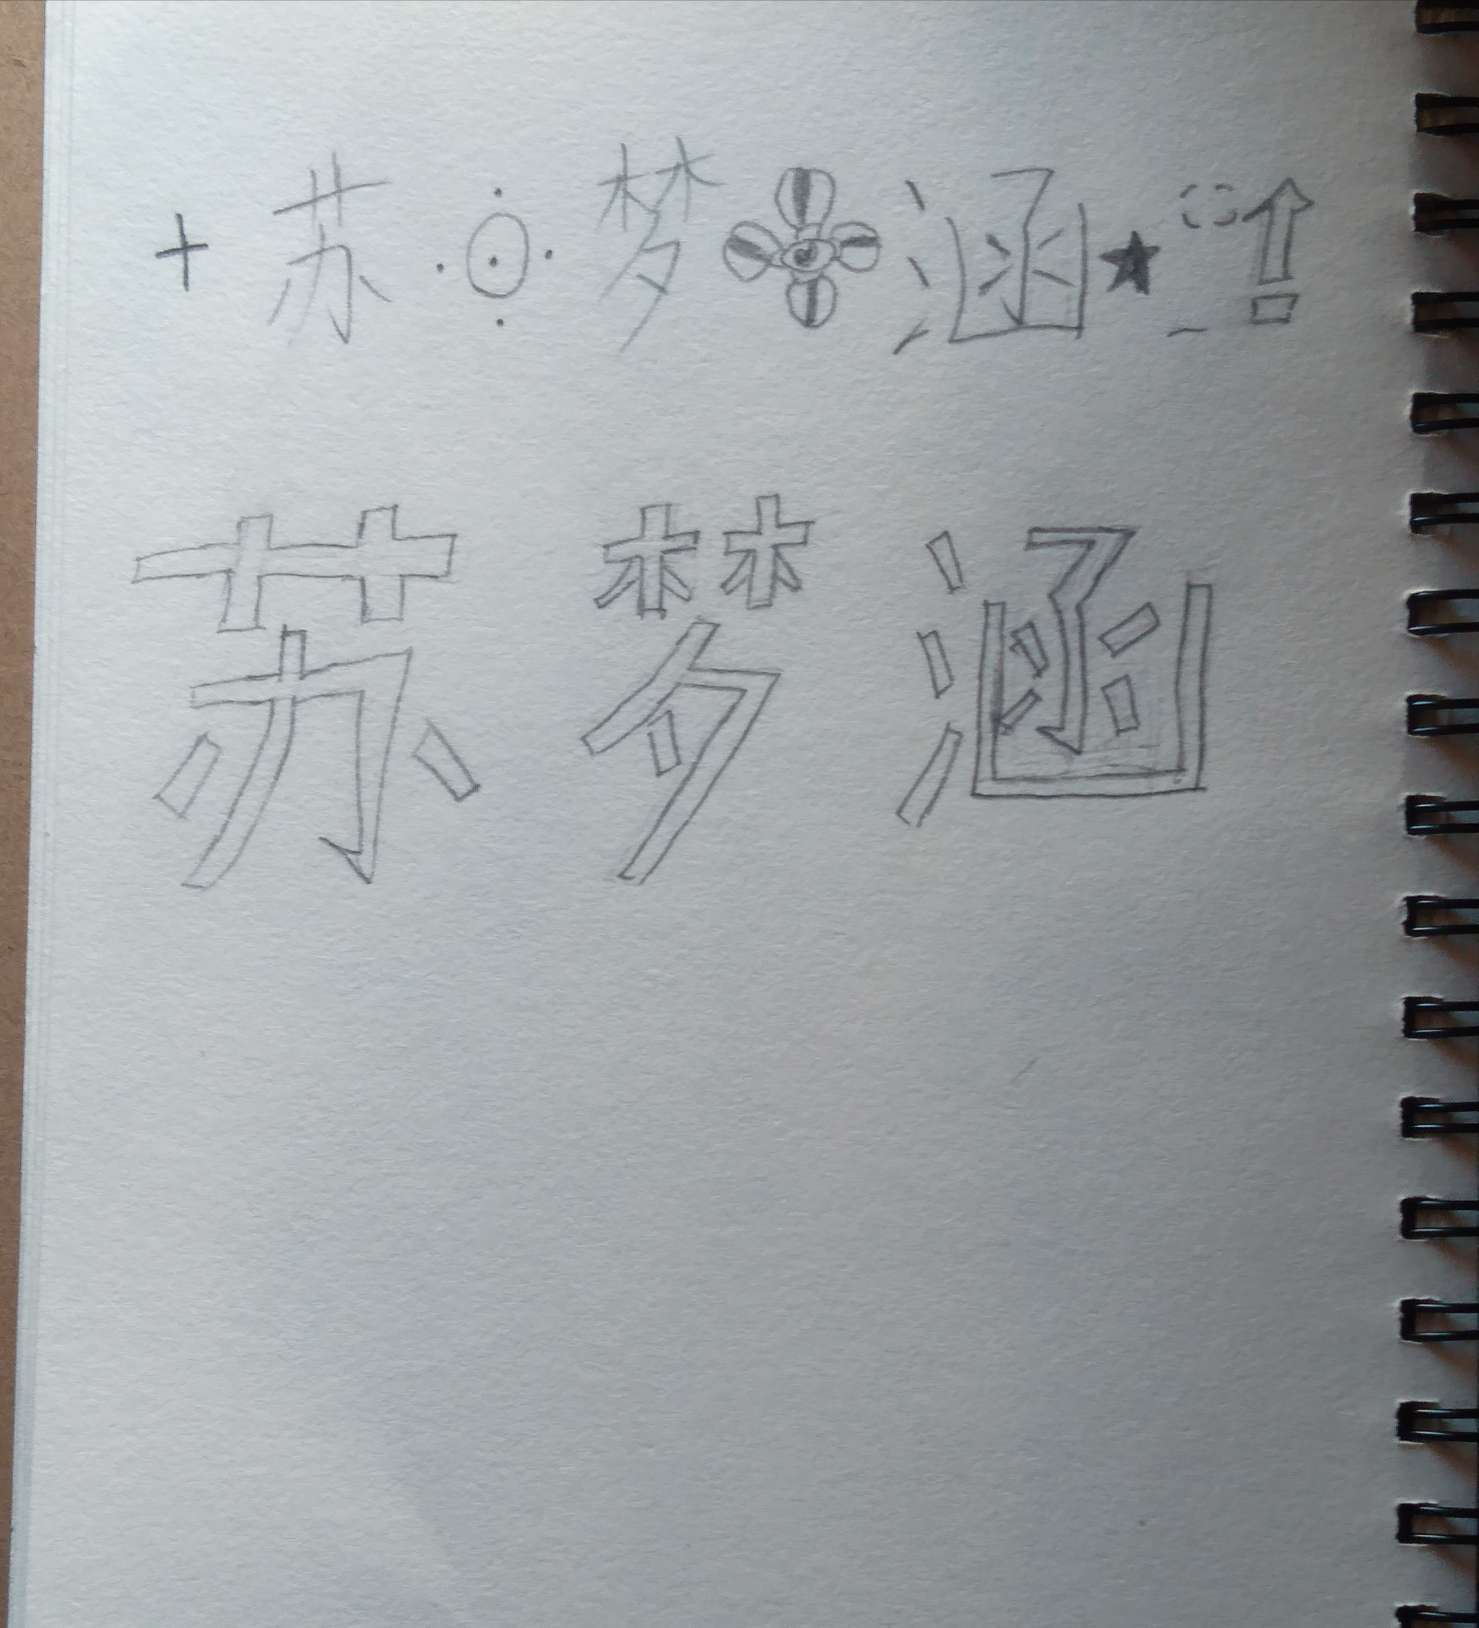 苏梦涵
苏梦涵